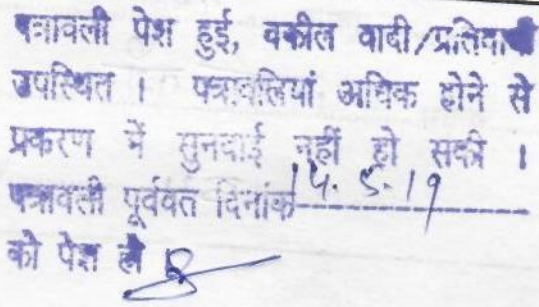 पत्रावली पेश हुई, वकील वादी/प्रतिवादी
उपस्थित । पत्रावलियां अधिक होने से
प्रकरण में सुनवाई नहीं हो सकी ।
पत्रावली पूर्ववत दिनांक 14.5.19
को पेश हो ।